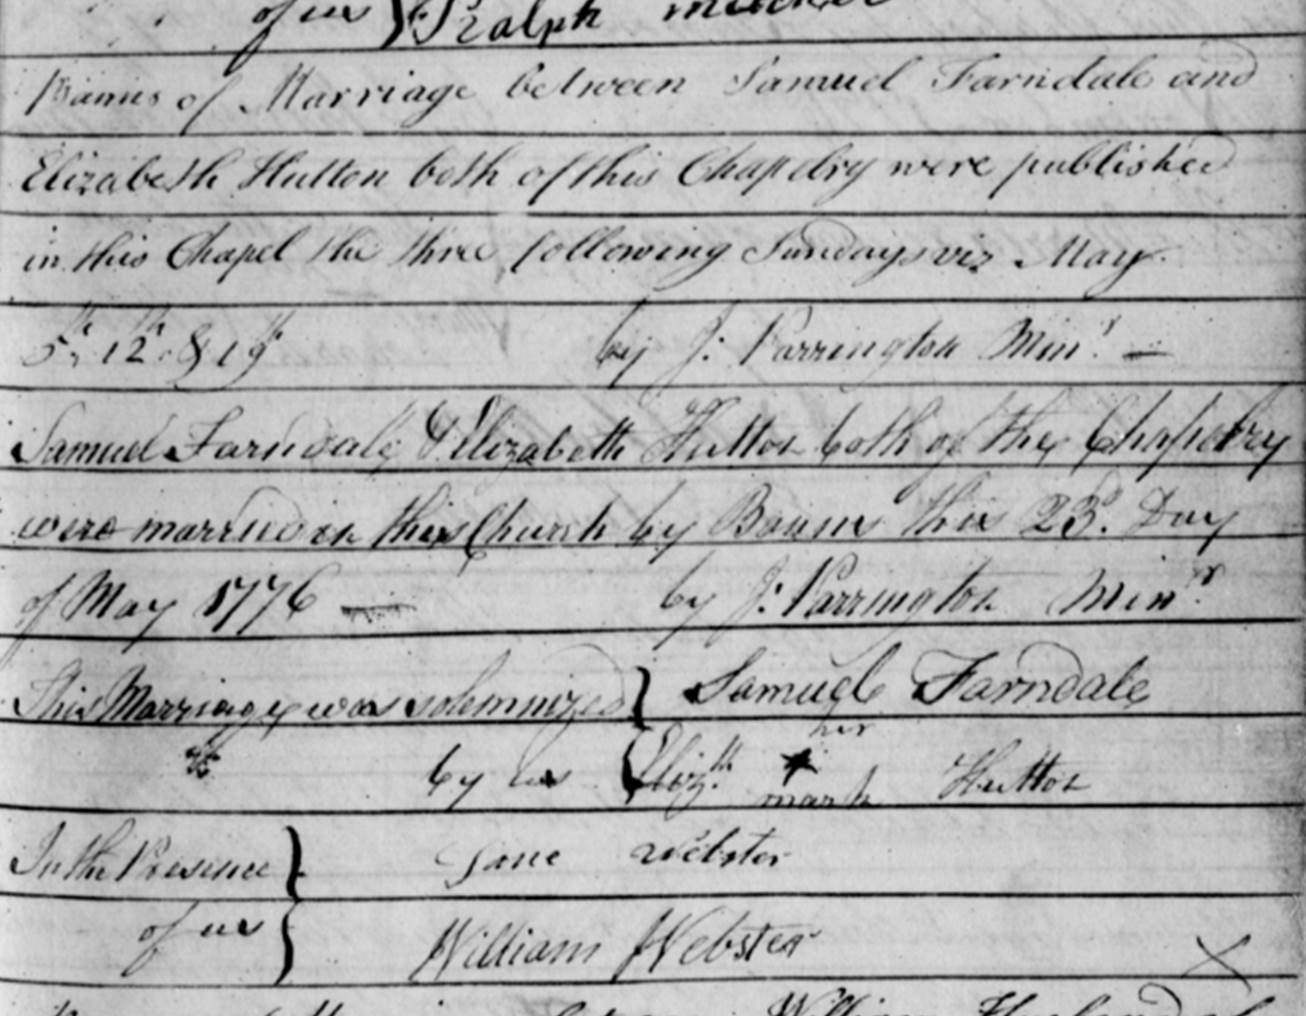 of us } Ralph
Banns of Marriage between Samuel Farndale and
Elizabeth Hutton both of this Chapelry were published
in this Chapel the three following Sundays viz May
5th, 12th & 19th by J: Parrington Minr. —
Samuel Farndale & Elizabeth Hutton both of this Chapelry
were married in this Church by Banns this 23d. Day
of May 1776 — by J: Parrington Minr.
This Marriage was solemnized } Samuel Farndale
her
by us { Elizth. x Hutton
mark
In the Presence } Jane Webster
of us } William Webster X
William